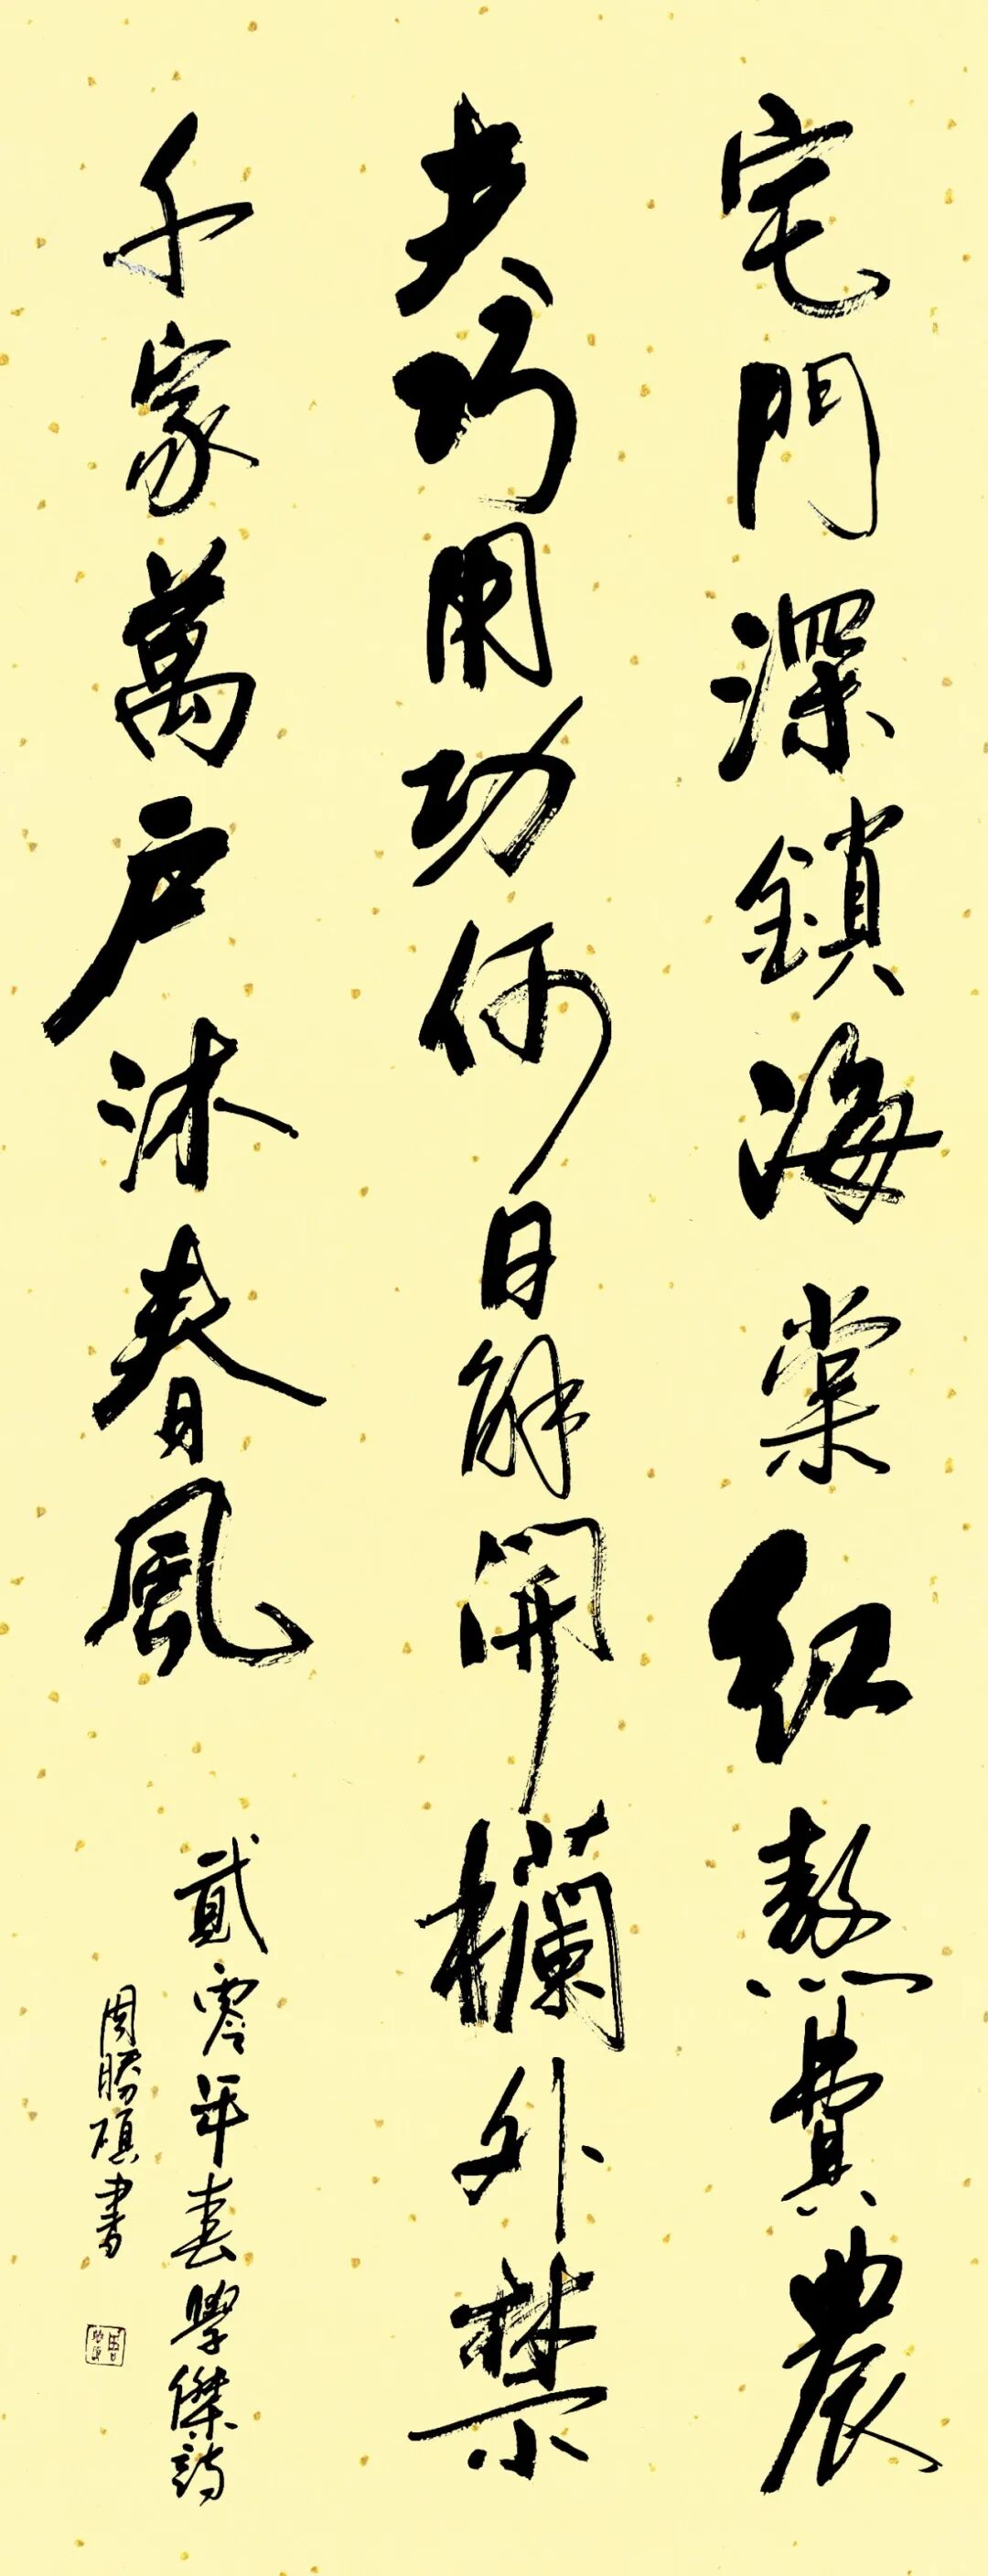 宅門深鎖海棠红熬費農
夫巧用功何日解開欄外禁
千家萬户沐春風
貳零年春學傑詩
周勝碩書